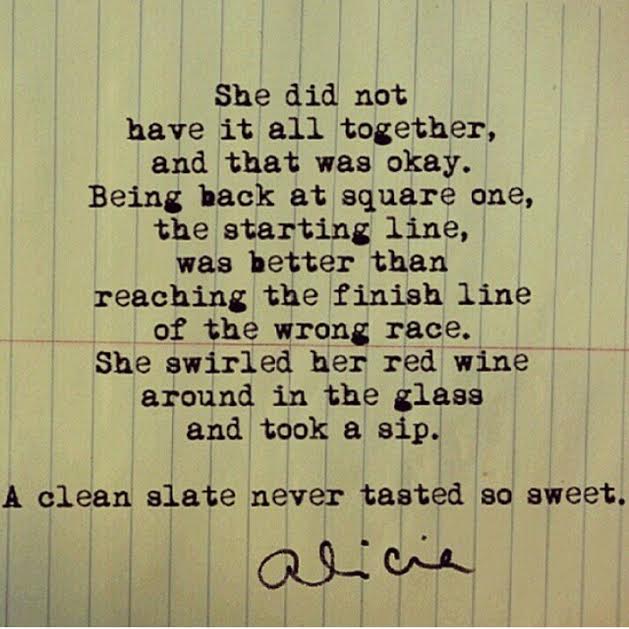 She did not
have it all together,
and that was okay.
Being back at square one,
the starting line,
was better than
reaching the finish line
of the wrong race.
She swirled her red wine
around in the glass
and took a sip.
A clean slate never tasted so sweet.
alicia